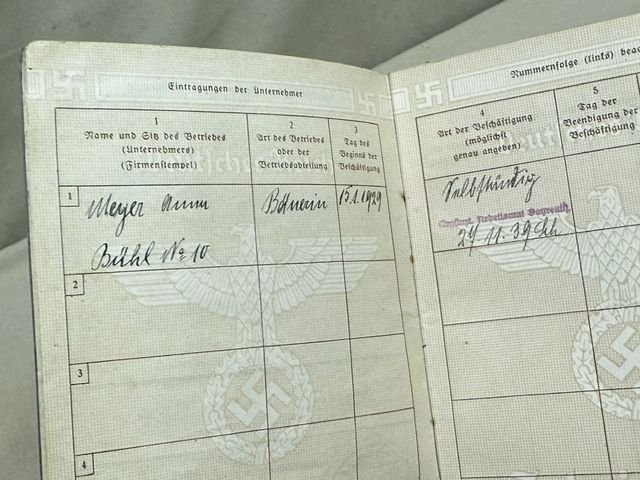 Eintragungen der Unternehmer
1
Name und Sitz des Betriebes
(Unternehmers)
(Firmenstempel)
2
Art des Betriebes
oder der
Betriebsabteilung
3
Tag des
Beginns der
Beschäftigung
1
Meyer Anna
Bötnerin
15.1.1929
Bühl No 10
2
3
4
Nummernfolge (links) beac
4
Art der Beschäftigung
(möglichst
genau angeben)
5
Tag der
Beendigung der
Beschäftigung
Selbständig
Arbeitsamt Bayreuth
24.11.39